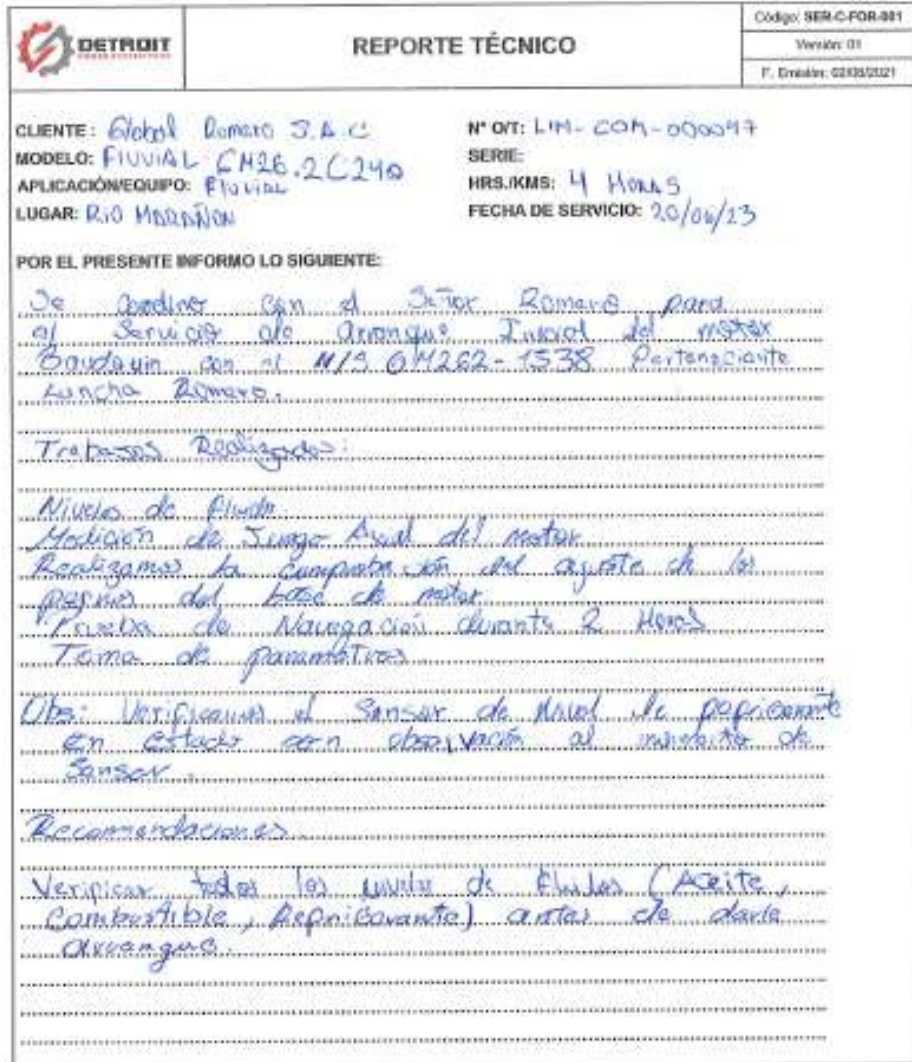 DETROIT
REPORTE TÉCNICO
Código: SER-C-FOR-001
Versión: 01
F. Emisión: 02/08/2021
CLIENTE: Global Romero S.A.C
N° O/T: LIM-COM-000097
MODELO: FLUVIAL 6M26.2C240
SERIE:
APLICACIÓN/EQUIPO: Fluvial
HRS./KMS: 4 HORAS
LUGAR: RIO MARAÑON
FECHA DE SERVICIO: 20/06/23
POR EL PRESENTE INFORMO LO SIGUIENTE:
Se con el Señor Romero para
el Servicio de arranque Inicial del motor
Baudouin con el N/S 6M262-1338 Perteneciente
Lancha Romero.
Trabajos Realizados:
Niveles de Fluido
Medición de Juego Axial del motor
Realizamos la comprobación del ajuste de los
pernos del base de motor
Prueba de Navegación durante 2 Horas
Toma de parametros
Obs: Verificamos el Sensor de Nivel de
en estado con observación al de
Sensor.
Recomendaciones
Verificar todos los niveles de Fluidos (Aceite,
Combustible, Refricerante) antes de darle
arranque.